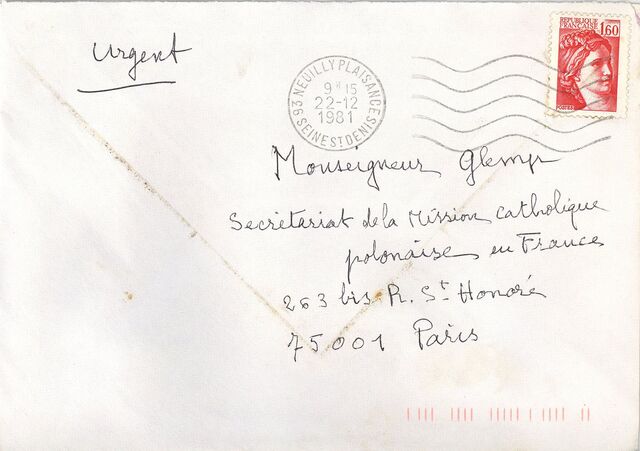 Urgent
REPUBLIQUE
FRANÇAISE
1,60
POSTES
93 NEUILLY PLAISANCE
9H15
22-12
1981
SEINE ST DENIS
Monseigneur Glemp
Secrétariat de la Mission catholique
polonaise en France
263 bis R. St Honoré
75001 Paris